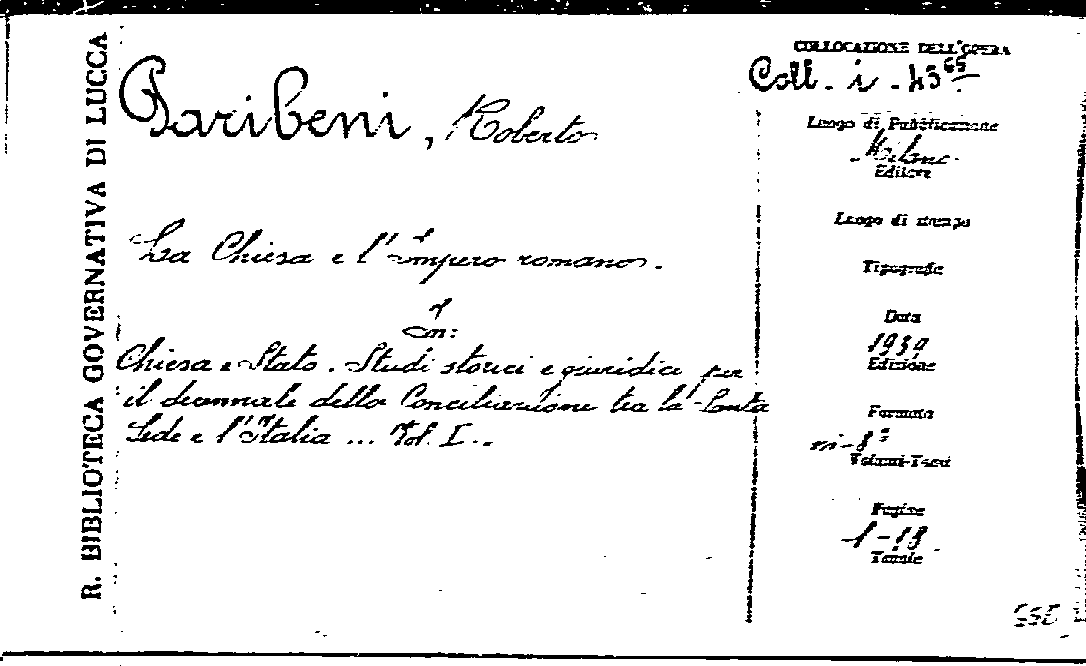 R. BIBLIOTECA GOVERNATIVA DI LUCCA
Paribeni, Roberto
La Chiesa e l'Impero romano.
In:
Chiesa e Stato. Studi storici e giuridici per
il decennale della Conciliazione tra la Santa
Sede e l'Italia ... Vol. I..
COLLOCAZIONE DELL'OPERA
Coll. i - 43
Luogo di Pubblicazione
Milano
Editore
Luogo di stampa
Tipografia
Data
1939
Edizione
Formato
in-8°
Volumi-Tomi
Pagine
1-18
Tavole